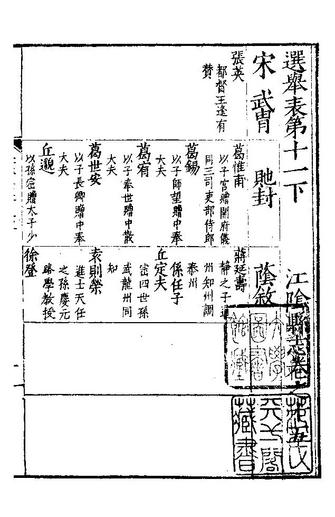 選舉表第十一下
江陰縣志卷之
宋 武胄 貤封 蔭敘
張英
都督王逢有
贊
以子宮贈開府儀
同三司吏部侍郎
葛錫
以子師望贈中奉
大夫
葛宥
以子奉世贈中散
大夫
葛世安
以子長卿贈中奉
大夫
丘邈
以孫崈贈太子少
蔣延壽
靜之子
州知州調
泰州
係任子
丘定夫
崈四世孫
武龍州同
知
袁則榮
進士天任
之孫慶元
路學教授